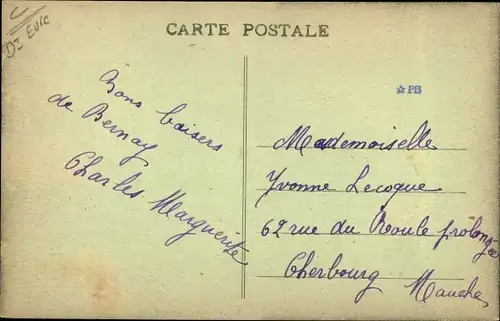 Dt Eure
CARTE POSTALE
PB
Bons baisers
de Bernay
Charles Marguerite
Mademoiselle
Yvonne Lecoque
62 rue du Roule prolongée
Cherbourg
Manche